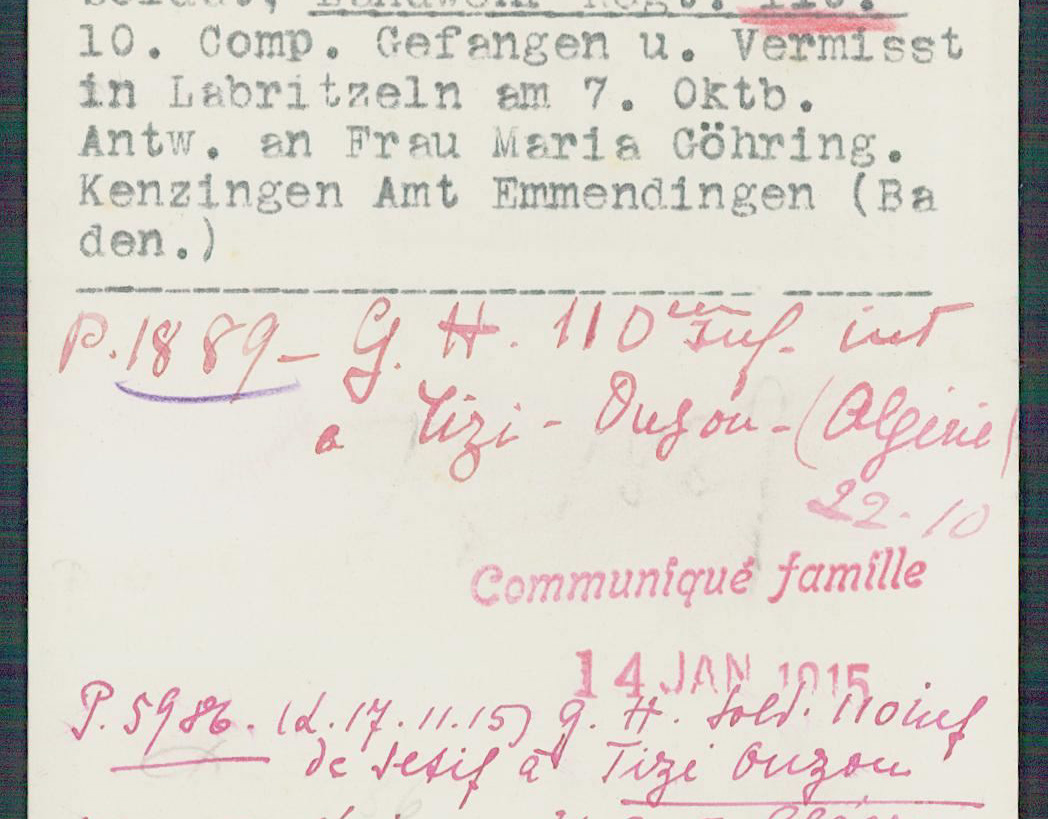 soldat, Landwehr Regt. 110.
10. Comp. Gefangen u. Vermisst
in Labritzeln am 7. Oktb.
Antw. an Frau Maria Göhring.
Kenzingen Amt Emmendingen (Ba
den.)
P. 1889 - G. H. 110eme Inf. int
a Tizi - Ouzou - (Algérie)
22-10
Communiqué famille
14 JAN 1915
P. 5986. (d. 17.11.15) G. H. sold. 110 inf
de Setif à Tizi Ouzou